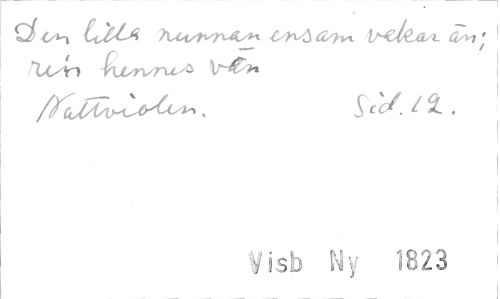 Den lilla nunnan ensam vakar än;
hennes vän
Nattviolen. Sid. 12.
Visb Ny 1823